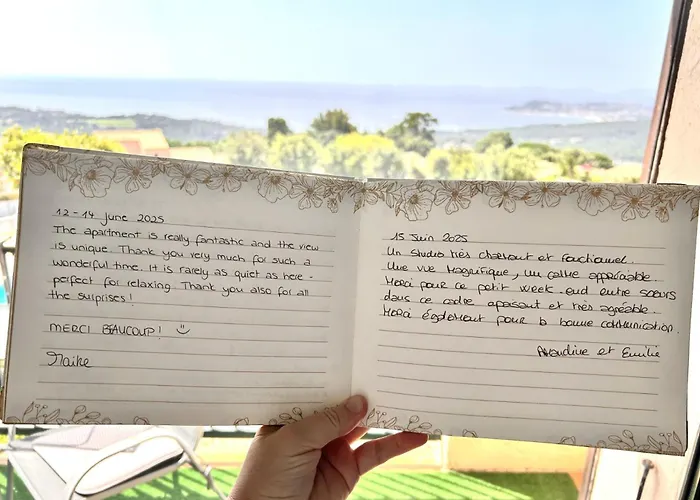 12 - 14 June 2025
The apartment is really fantastic and the view
is unique. Thank you very much for such a
wonderful time. It is rarely as quiet as here -
perfect for relaxing. Thank you also for all
the surprises!
MERCI BEAUCOUP! ☺
Maike
15 Juin 2025
Un studio très charmant et fonctionnel.
Une vue magnifique, un calme appréciable.
Merci pour ce petit week-end entre soeurs
dans ce cadre apaisant et très agréable.
Merci également pour la bonne communication.
Amandine et Emilie